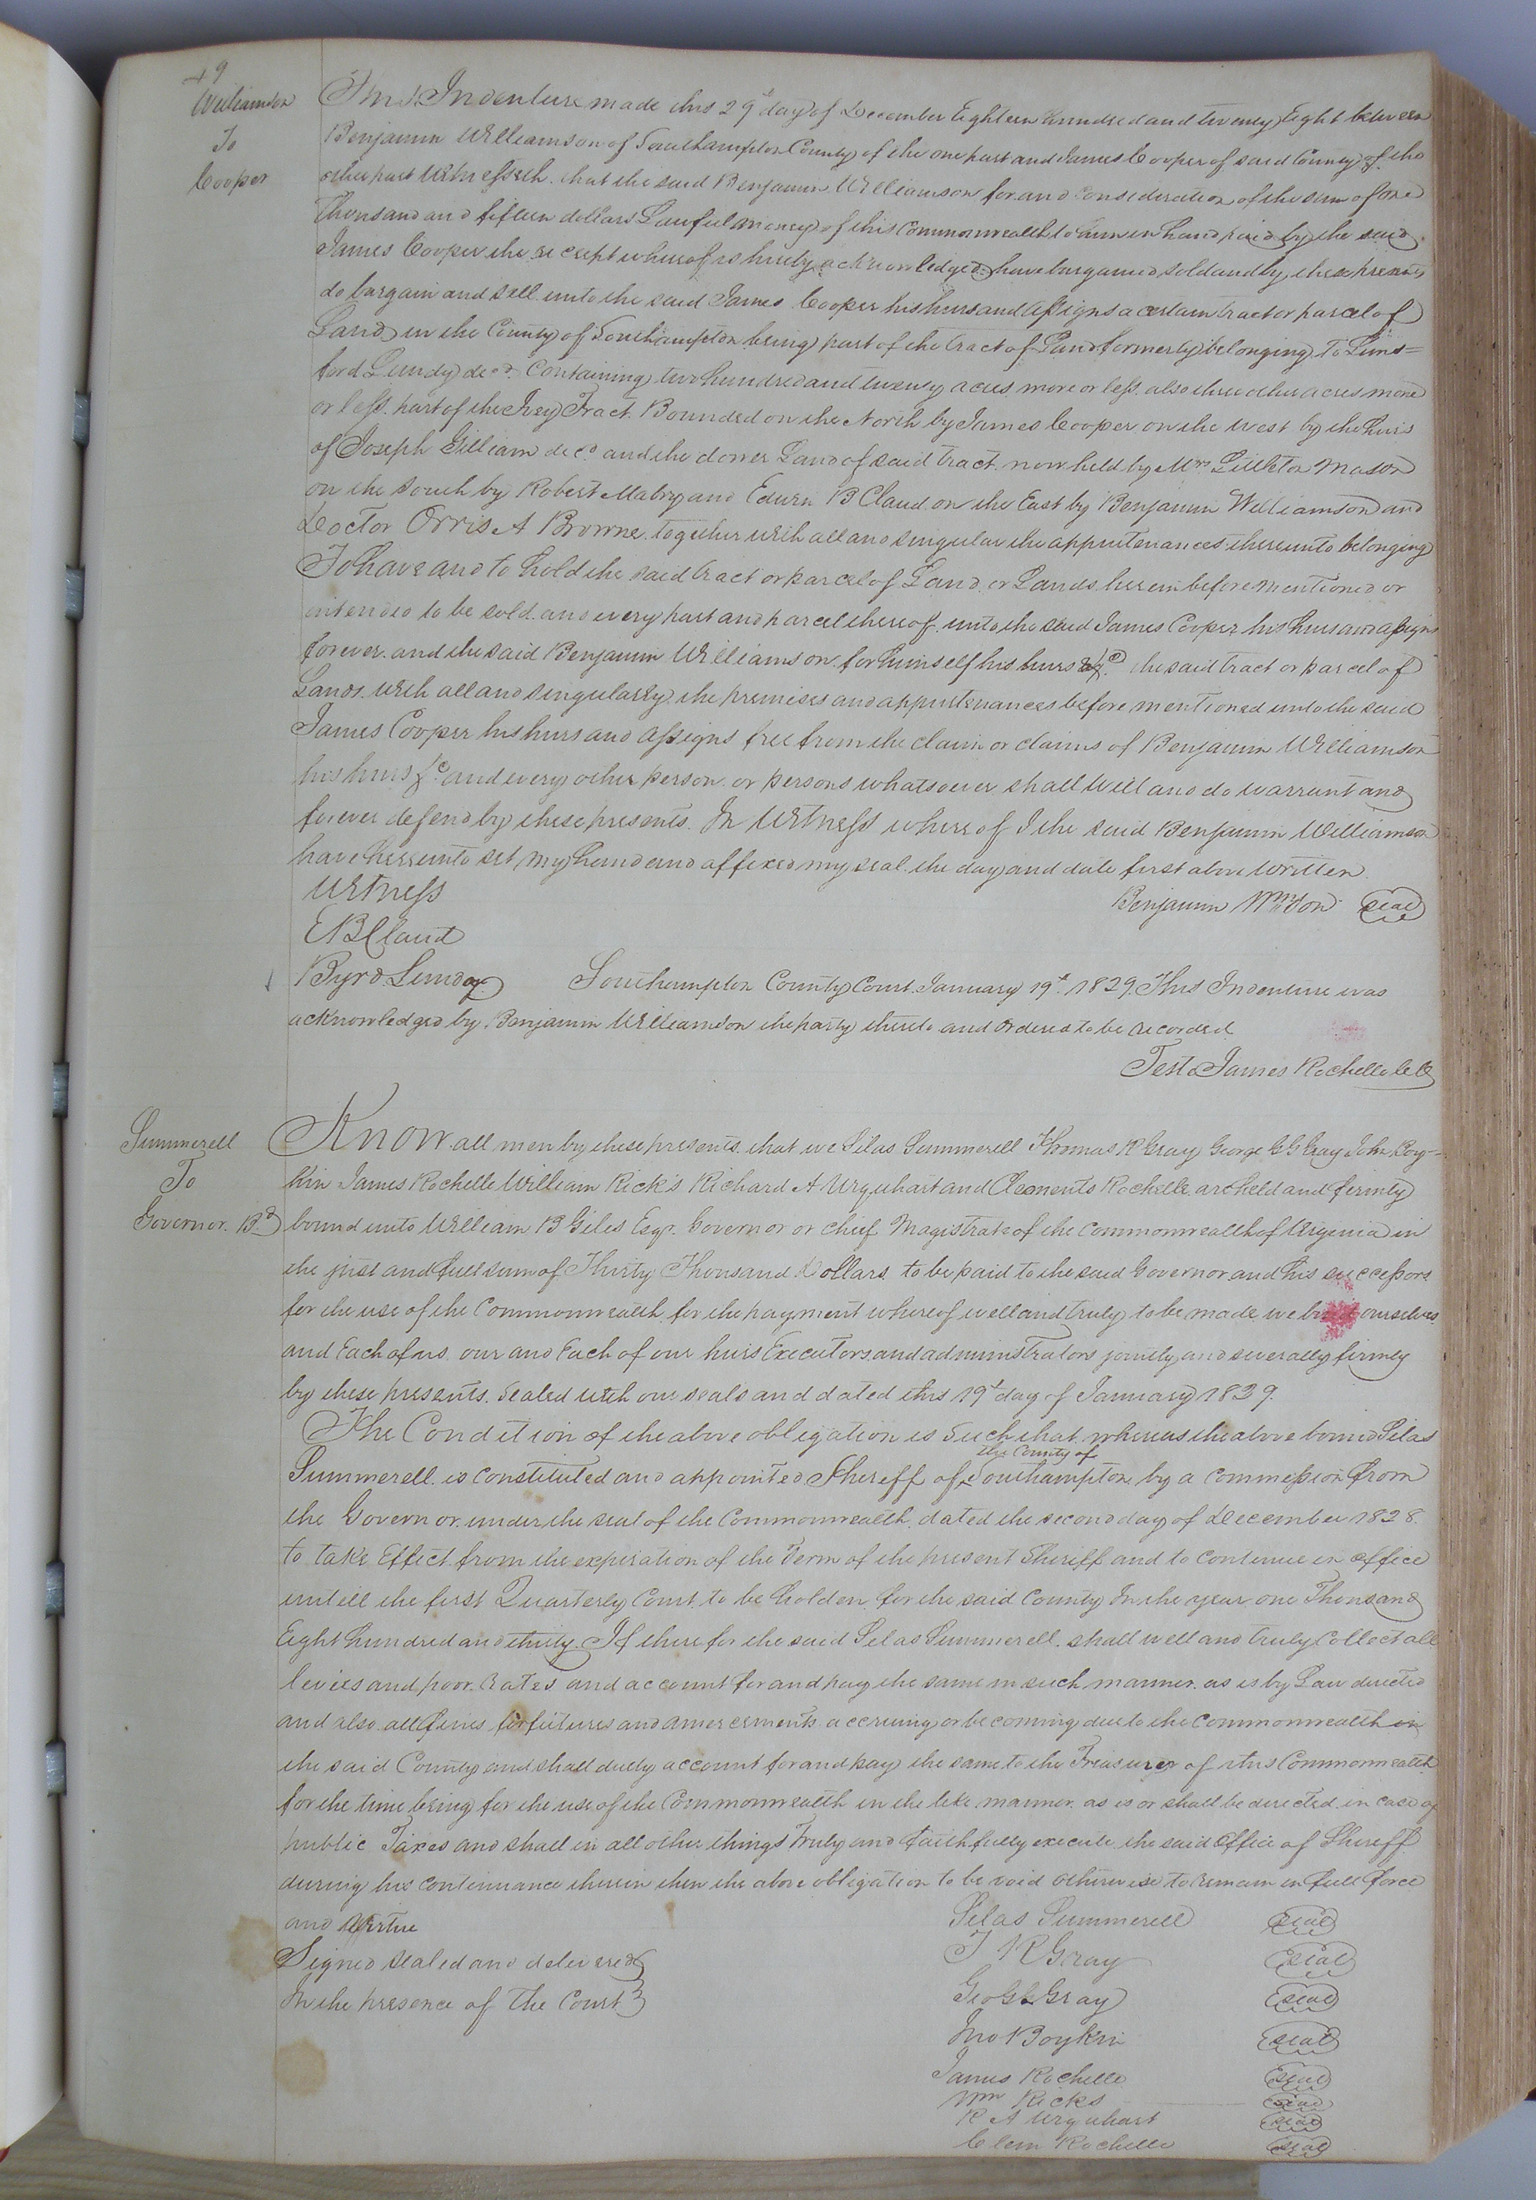 49
Williamson
To
Cooper
This Indenture made this 29th day of December Eighteen hundred and twenty Eight between
Benjamin Williamson of Southampton County of the one part and James Cooper of said County of the
other part Witnesseth that the said Benjamin Williamson for and consideration of the sum of one
Thousand and fifteen dollars Lawful money of this Commonwealth to him in hand paid by the said
James Cooper the receipt whereof is hereby acknowledged have bargained sold and by these presents
do bargain and sell unto the said James Cooper his heirs and assigns a certain tract or parcel of
Land in the County of Southampton being part of the tract of Land formerly belonging To Luns=
ford Lundy decd. Containing two hundred and twenty acres more or less also three other acres more
or less part of the Ivey Tract Bounded on the North by James Cooper on the west by the heirs
of Joseph Gilliam decd and the dower Land of said tract now held by Mrs Littleton Mason
on the South by Robert Mabry and Edwin B Claud on the East by Benjamin Williamson and
Doctor Orris A Browne together with all and singular the appurtenances thereunto belonging
To have and to hold the said tract or parcel of Land or Lands herein before mentioned or
intended to be sold and every part and parcel thereof unto the said James Cooper his heirs and assigns
forever and the said Benjamin Williamson for himself his heirs &c the said tract or parcel of
Lands with all and singularly the premises and appurtenances before mentioned unto the said
James Cooper his heirs and assigns free from the claim or claims of Benjamin Williamson
his heirs &c and every other person or persons whatsoever shall will and do warrant and
forever defend by these presents. In Witness whereof I the said Benjamin Williamson
have hereunto set my hand and affixed my seal the day and date first above written
Witness
Benjamin Wmson seal
E B Claud
Byrd Lundy
Southampton County Court January 19th 1829. This Indenture was
acknowledged by Benjamin Williamson the party thereto and Ordered to be recorded
Teste James Rochelle CC
Summerell
To
Governor Bd
Know all men by these presents that we Silas Summerell Thomas R Gray George G G Gray John Boy-
kin James Rochelle William Rick's Richard A Urquhart and Clements Rochelle are held and firmly
bound unto William B Giles Esqr. Governor or chief Magistrate of the Commonwealth of Virginia in
the just and full sum of Thirty Thousand Dollars to be paid to the said Governor and his successors
for the use of the Commonwealth for the payment whereof well and truly to be made we bind ourselves
and Each of us our and Each of our heirs Executors and administrators jointly and severally firmly
by these presents. Sealed with our seals and dated this 19th day of January 1829.
The Condition of the above obligation is such that whereas the above bound Silas
the County of
Summerell is constituted and appointed Sheriff of Southampton by a commission from
the Governor under the seal of the Commonwealth dated the second day of December 1828
to take Effect from the expiration of the Term of the present Sheriff and to continue in office
untill the first Quarterly Court to be holden for the said County In the year one Thousand
Eight hundred and thirty. If therefor the said Silas Summerell shall well and truly Collect all
levies and poor Rates and account for and pay the same in such manner as is by Law directed
and also all fines forfeitures and amercements accruing or becoming due to the Commonwealth in
the said County and shall duely account for and pay the same to the Treasurer of this Commonwealth
for the time being for the use of the Commonwealth in the like manner as is or shall be directed in case of
public Taxes and shall in all other things Truly and faithfully execute the said office of Sheriff
during his continuance therein then the above obligation to be void otherwise to remain in full force
and Virtue
Silas Summerell seal
Signed sealed and delivered
T R Gray seal
In the presence of The Court
Geo G G Gray seal
Jno Boykin seal
James Rochelle seal
Wm Ricks seal
R A Urquhart seal
Clem Rochelle seal